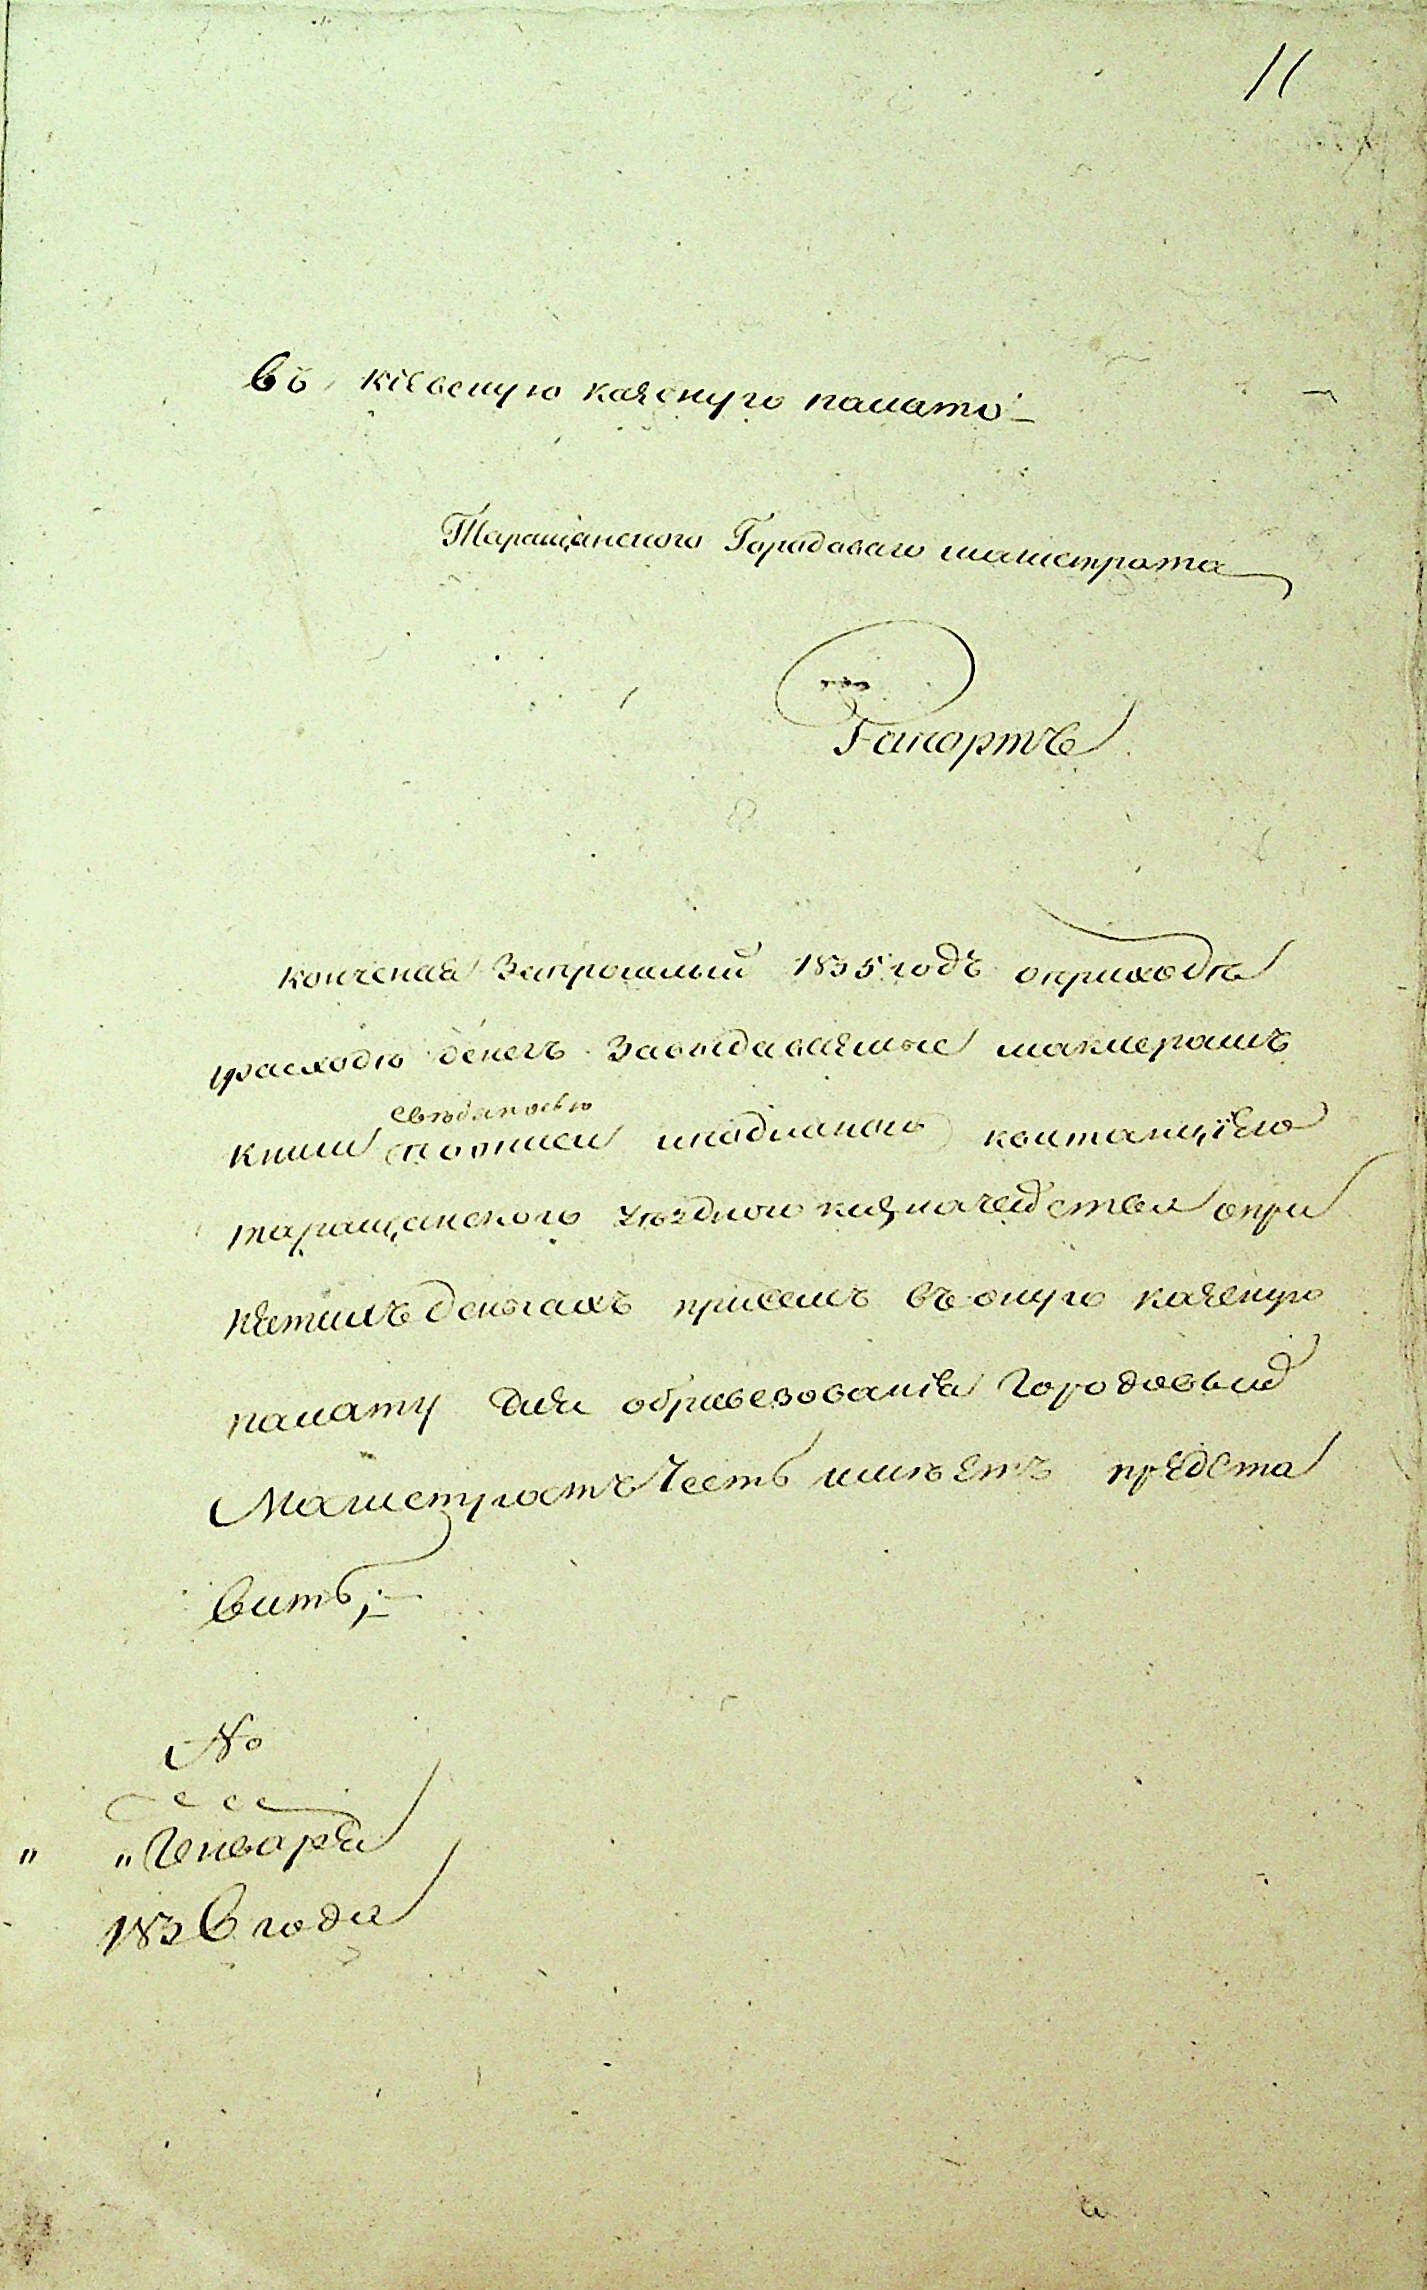 11
Въ Кіевскую казеную палату
Таращанского Городоваго магистрата
Рапортъ
Конченная За прошлый 1835 годъ оприходѣ
ирасходѣ денегъ Завѣдаваемые маклерамъ
сведеностью
книги споописи иподлиною квитанціею
таращанского уѣздного казначейства опри
нятихъ деньгахъ присемъ въ оную казеную
палату для обривезованія Городовый
Магистратъ Честь имѣетъ предста
вить,
№
" " Генваря
1836 года